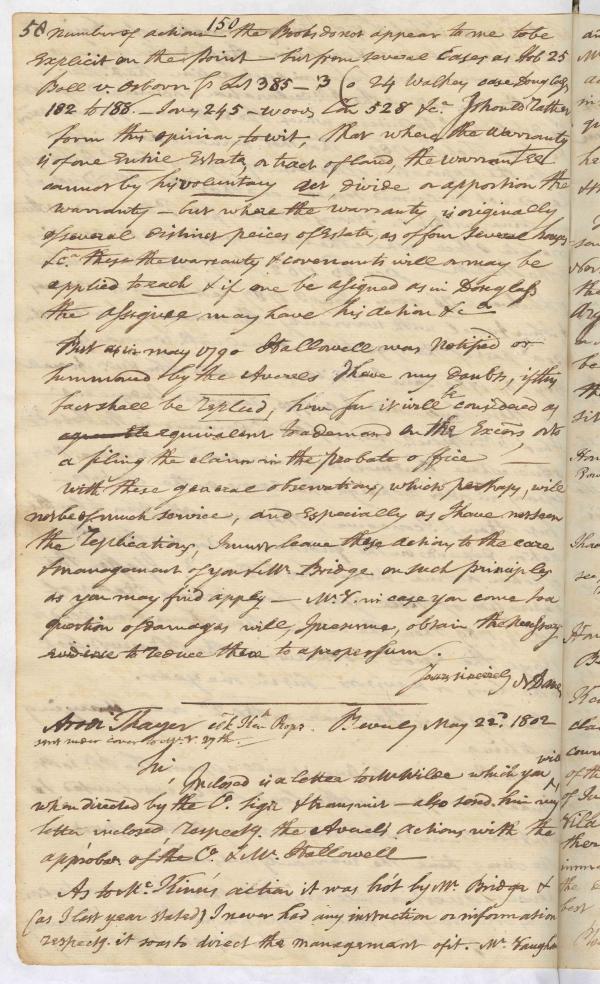 58
150
number of actions - the Books do not appear to me to be
explicit on the Point - but from several Cases as Hob 25
Ball v. Osborn 385 - 3 Co 24 Walkers case Douglas
182 to 188. - Jones 245 - woods Con 528 &ca I should rather
form this opinion, to wit, that where the warranty
is of one Entire Estate, or tract of land, the warrantee
cannot by his voluntary act, divide or apportion the
warranty - but where the warranty is originally
of several distinct peices of Estate, as of four several houses
&ca these the warranty & covenants will or may be
applied to each & if one be assigned as in Douglass
the assignee may have his action &ca
But as in may 1790 Hallowell was notified or
summoned by the Averels I have my doubts, if this
fact shall be replied, how far it will be considered as
equivalent to a demand on the Excors, or to
a filing the claim in the probate office -
With these general observations, which perhaps, will
not be of much service, and especially as I have not seen
the replications, I must leave these actions to the care
& management of you & Mr. Bridge on such principles
as you may find apply - Mr. V. in case you come to a
question of damages will, I presume, obtain the necessary
evidence to reduce them to a proper sum.
Yours sincerely N Dane
Arodi Thayer Kennk Props. Beverly May 22d. 1802
sent under cover to Mr. V. 27th.
Sir, Inclosed is a letter to Mr Wilde which you will
when directed by the Co. sign & transmit - also send him my
letter inclosed respectg. the Averels actions with the
approbn. of the Co. & Mr. Hallowell
As to Mc. Kinns action it was bro't by Mr. Bridge &
(as I last year stated) I never had any instruction or information
respectg. it so as to direct the management of it. Mr. Vaughan